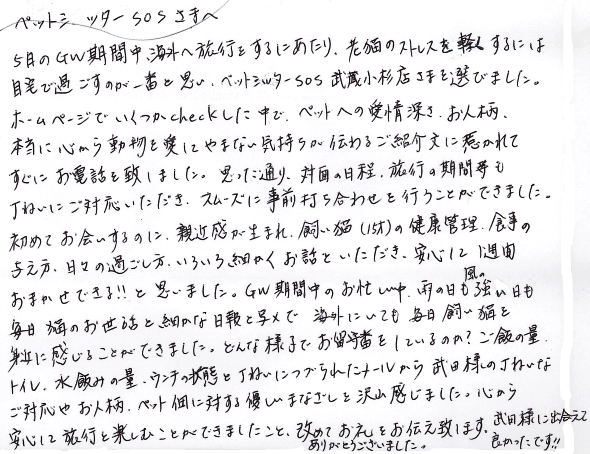 ペットシッターSOSさまへ
5月のGW期間中、海外へ旅行をするにあたり、老猫のストレスを軽くするには
自宅で過ごすのが一番と思い、ペットシッターSOS 武蔵小杉店さまを選びました。
ホームページでいくつかcheckした中で、ペットへの愛情深さ、お人柄、
本当に心から動物を愛してやまない気持ちが伝わるご紹介文に惹かれて
すぐにお電話を致しました。思った通り、対面の日程、旅行の期間等も
丁ねいにご対応いただき、スムーズに事前打ち合わせを行うことができました。
初めてお会いするのに、親近感が生まれ、飼い猫(15才)の健康管理、食事の
与え方、日々の過ごし方、いろいろ細かくお話をいただき、安心して1週間
おまかせできる!!と思いました。GW期間中のお忙しい中、雨の日も風の強い日も
毎日猫のお世話と細かな日報と写メで海外にいても毎日飼い猫を
身近に感じることができました。どんな様子でお留守番をしているのか?ご飯の量、
トイレ、水飲みの量、ウンチの状態と丁ねいにつづられたメールから武田様の丁ねいな
ご対応やお人柄、ペット個に対する優しいまなざしを沢山感じました。心から
安心して旅行を楽しむことができましたこと、改めてお礼をお伝え致します。武田様に出会えて
ありがとうございました。良かったです!!